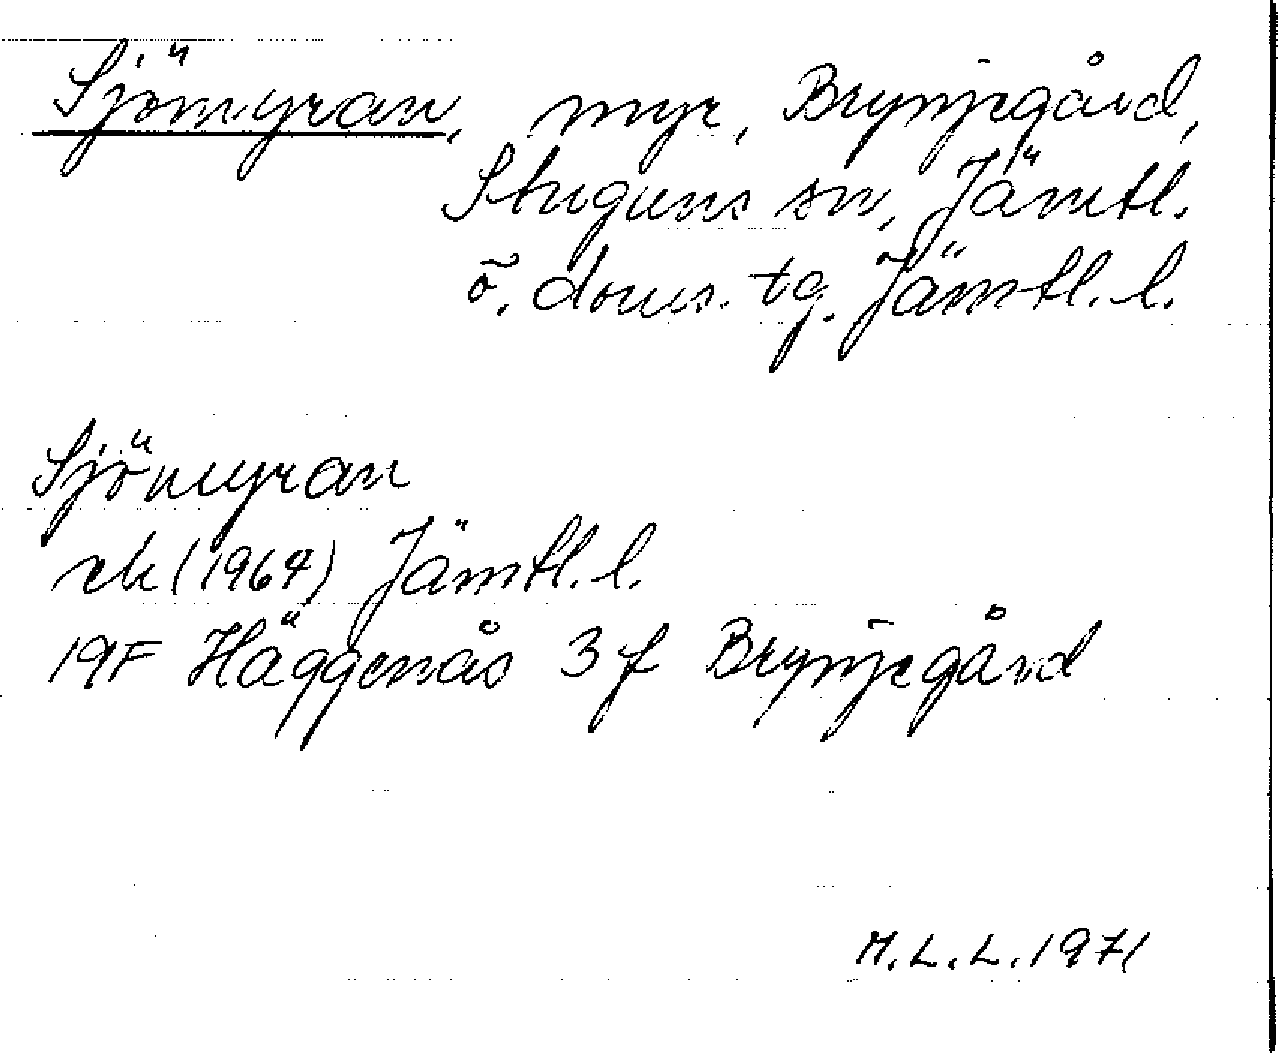 Sjömyran, myr, Brynjegård,
Stuguns sn, Jämtl.
ö. doms. tg. Jämtl. l.
Sjömyran
rek (1964) Jämtl. l.
19F Häggenås 3f Brynjegård
M.L.L. 1971